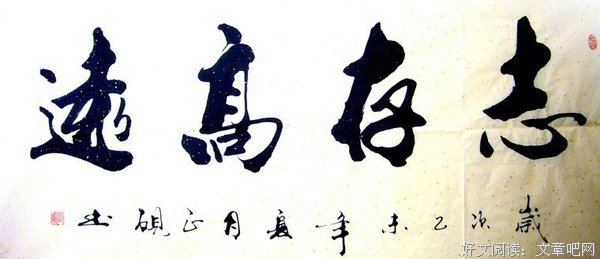 志存高遠
歲次乙未年夏月正硯书
好文阅读：文章吧网